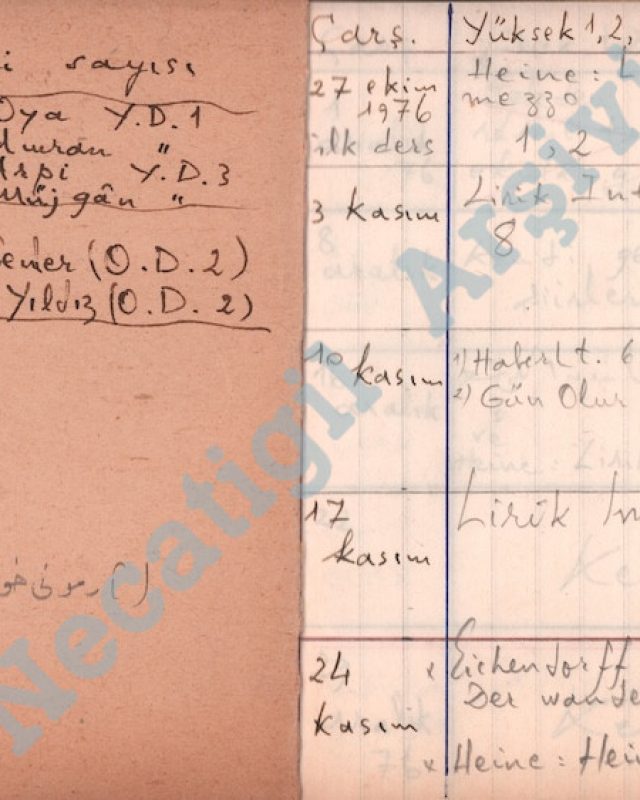 i sayısı
Oya Y.D.1
Y.D.3
gân "
(O.D.2)
Yıldız (O.D.2)
Çarş. Yüksek 1, 2,
27 ekim 1976
ilk ders
Heine: L
mezzo
1, 2
3 kasım
Lirik Int
8
10 kasım
1)
2) Gün Olur
17
kasım
Lirik In
24
kasım
x Eichendorff
Der wande
x Heine: Hein
Necatigil Arşivi